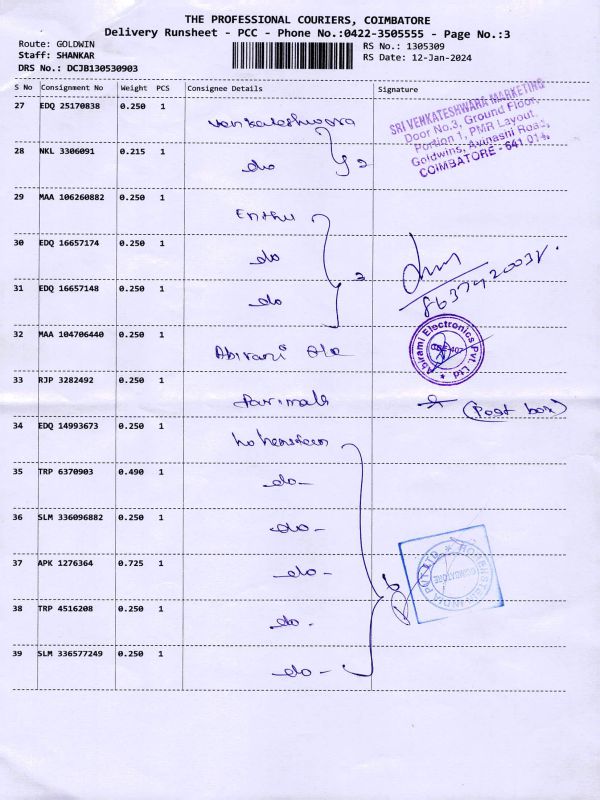 THE PROFESSIONAL COURIERS, COIMBATORE
Delivery Runsheet - PCC - Phone No.:0422-3505555 - Page No.:3
Route: GOLDWIN
RS No.: 1305309
Staff: SHANKAR
RS Date: 12-Jan-2024
DRS No.: DCJB130530903
S No Consignment No Weight PCS Consignee Details Signature
27 EDQ 25170838 0.250 1 Venkateshwara
SRI VENKATESHWARA MARKETING
Door No.3, Ground Floor,
Portion 1, PMR Layout,
Goldwins, Avinashi Road,
COIMBATORE - 641 014.
28 NKL 3306091 0.215 1 do 2
29 MAA 106260882 0.250 1 Enthu
30 EDQ 16657174 0.250 1 do 3
31 EDQ 16657148 0.250 1 do
32 MAA 104706440 0.250 1 Abirami Ele
Abirami Electronics Pvt. Ltd
CBE-407
33 RJP 3282492 0.250 1 Parimala (Post box)
34 EDQ 14993673 0.250 1
35 TRP 6370903 0.490 1 do-
36 SLM 336096882 0.250 1 do-
37 APK 1276364 0.725 1 do- 6
COIMBATORE
38 TRP 4516208 0.250 1 do-
39 SLM 336577249 0.250 1 do-